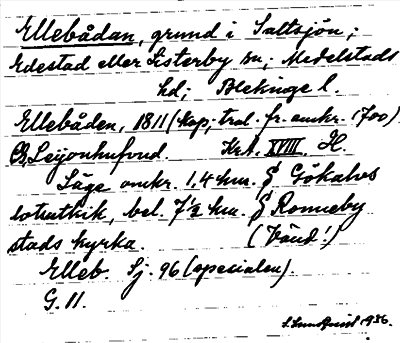 Ellebådan, grund i Saltsjön;
Edestad eller Listerby sn; Medelstads
hd; Blekinge l.
Ellebåden, 1811 (kop; trol. fr. omkr. 1700).
Ch. Leijonhufvud Krt. XVIII. H
Läge omkr. 1,4 km. § Gökalvs
lotsutkik, bel. 7½ km. § Ronneby
stads kyrka. (Vänd!)
Elleb. Sj. 96 (specialen).
G. 11.
S. Lundkvist 1936.